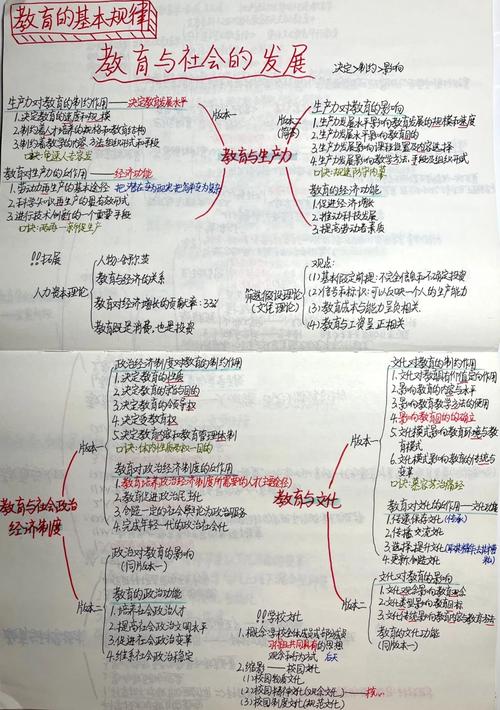 教育的基本规律
教育与社会的发展
决定>制约>影响
生产力对教育的制约作用——决定教育发展水平
1.决定教育的速度和规模
2.制约着人才培养的规格和教育结构
3.制约着教学的内容、方法、组织形式和手段
教育对生产力的作用——经济功能
1.劳动力再生产的基本途径
2.科学知识再生产的最有效形式
3.进行技术创新的一个重要手段
版本一
教育与生产力
版本二
生产力对教育的影响
1.生产力发展水平影响教育发展的规模和速度
2.生产力发展水平影响教育目的
3.生产力发展影响课程设置及内容选择
4.生产力发展影响教学方法、手段及组织形式
教育的经济功能
1.促进经济增长
2.推动科技发展
3.提高劳动者素质
!!拓展
人力资本理论
人物:舒尔茨
教育与经济的关系
教育对经济增长的贡献率:33%
教育既是消费,也是投资
筛选假设理论
(文凭理论)
观点:
(1)基本假定前提:不完全信息和不确定投资
(2)信号和标识:可以反映一个人的生产能力
(3)教育成本与能力呈负相关
(4)教育与工资呈正相关
教育与社会政治
经济制度
版本一
政治经济制度对教育的制约作用
1.决定教育的性质
2.决定教育的宗旨与目的
3.决定教育的领导权
4.决定受教育权
5.决定教育内容和教育管理体制
教育对政治经济制度的作用
1.教育培养政治经济制度所需要的人才(主要途径)
2.教育促进政治民主化
3.创造一定的社会舆论为政治服务
4.完成年轻一代的政治社会化
版本二
政治对教育的影响
(同版本一)
教育的政治功能
1.培养社会政治人才
2.提高社会政治文明水平
3.促进社会政治变革
4.维系社会政治稳定
教育与文化
版本一
文化对教育的制约作用
1.文化对教育具有价值定向作用
2.影响教育的内容与水平
3.影响教育教学方法的使用
4.影响教育目的的确立
5.文化模式影响教育环境与教育模式
6.文化模式影响教育的传统与变革
教育对文化的作用——文化功能
1.传递保存文化(传承)
2.传播交流文化
3.选择、提升文化
4.更新、创造文化
版本二
文化对教育的影响
1.文化观念影响教育观念
2.文化类型影响教育目标
3.文化传统影响教育内容与教育方法
教育的文化功能
(同版本一)
!!学校文化
1.概念:学校全体成员或部分成员
习得且共同具有的思想
观念和行为方式
2.缩影——校园文化
(1)校园物质文化
(2)校园精神文化(观念文化)——核心
(3)校园制度文化(规范文化)